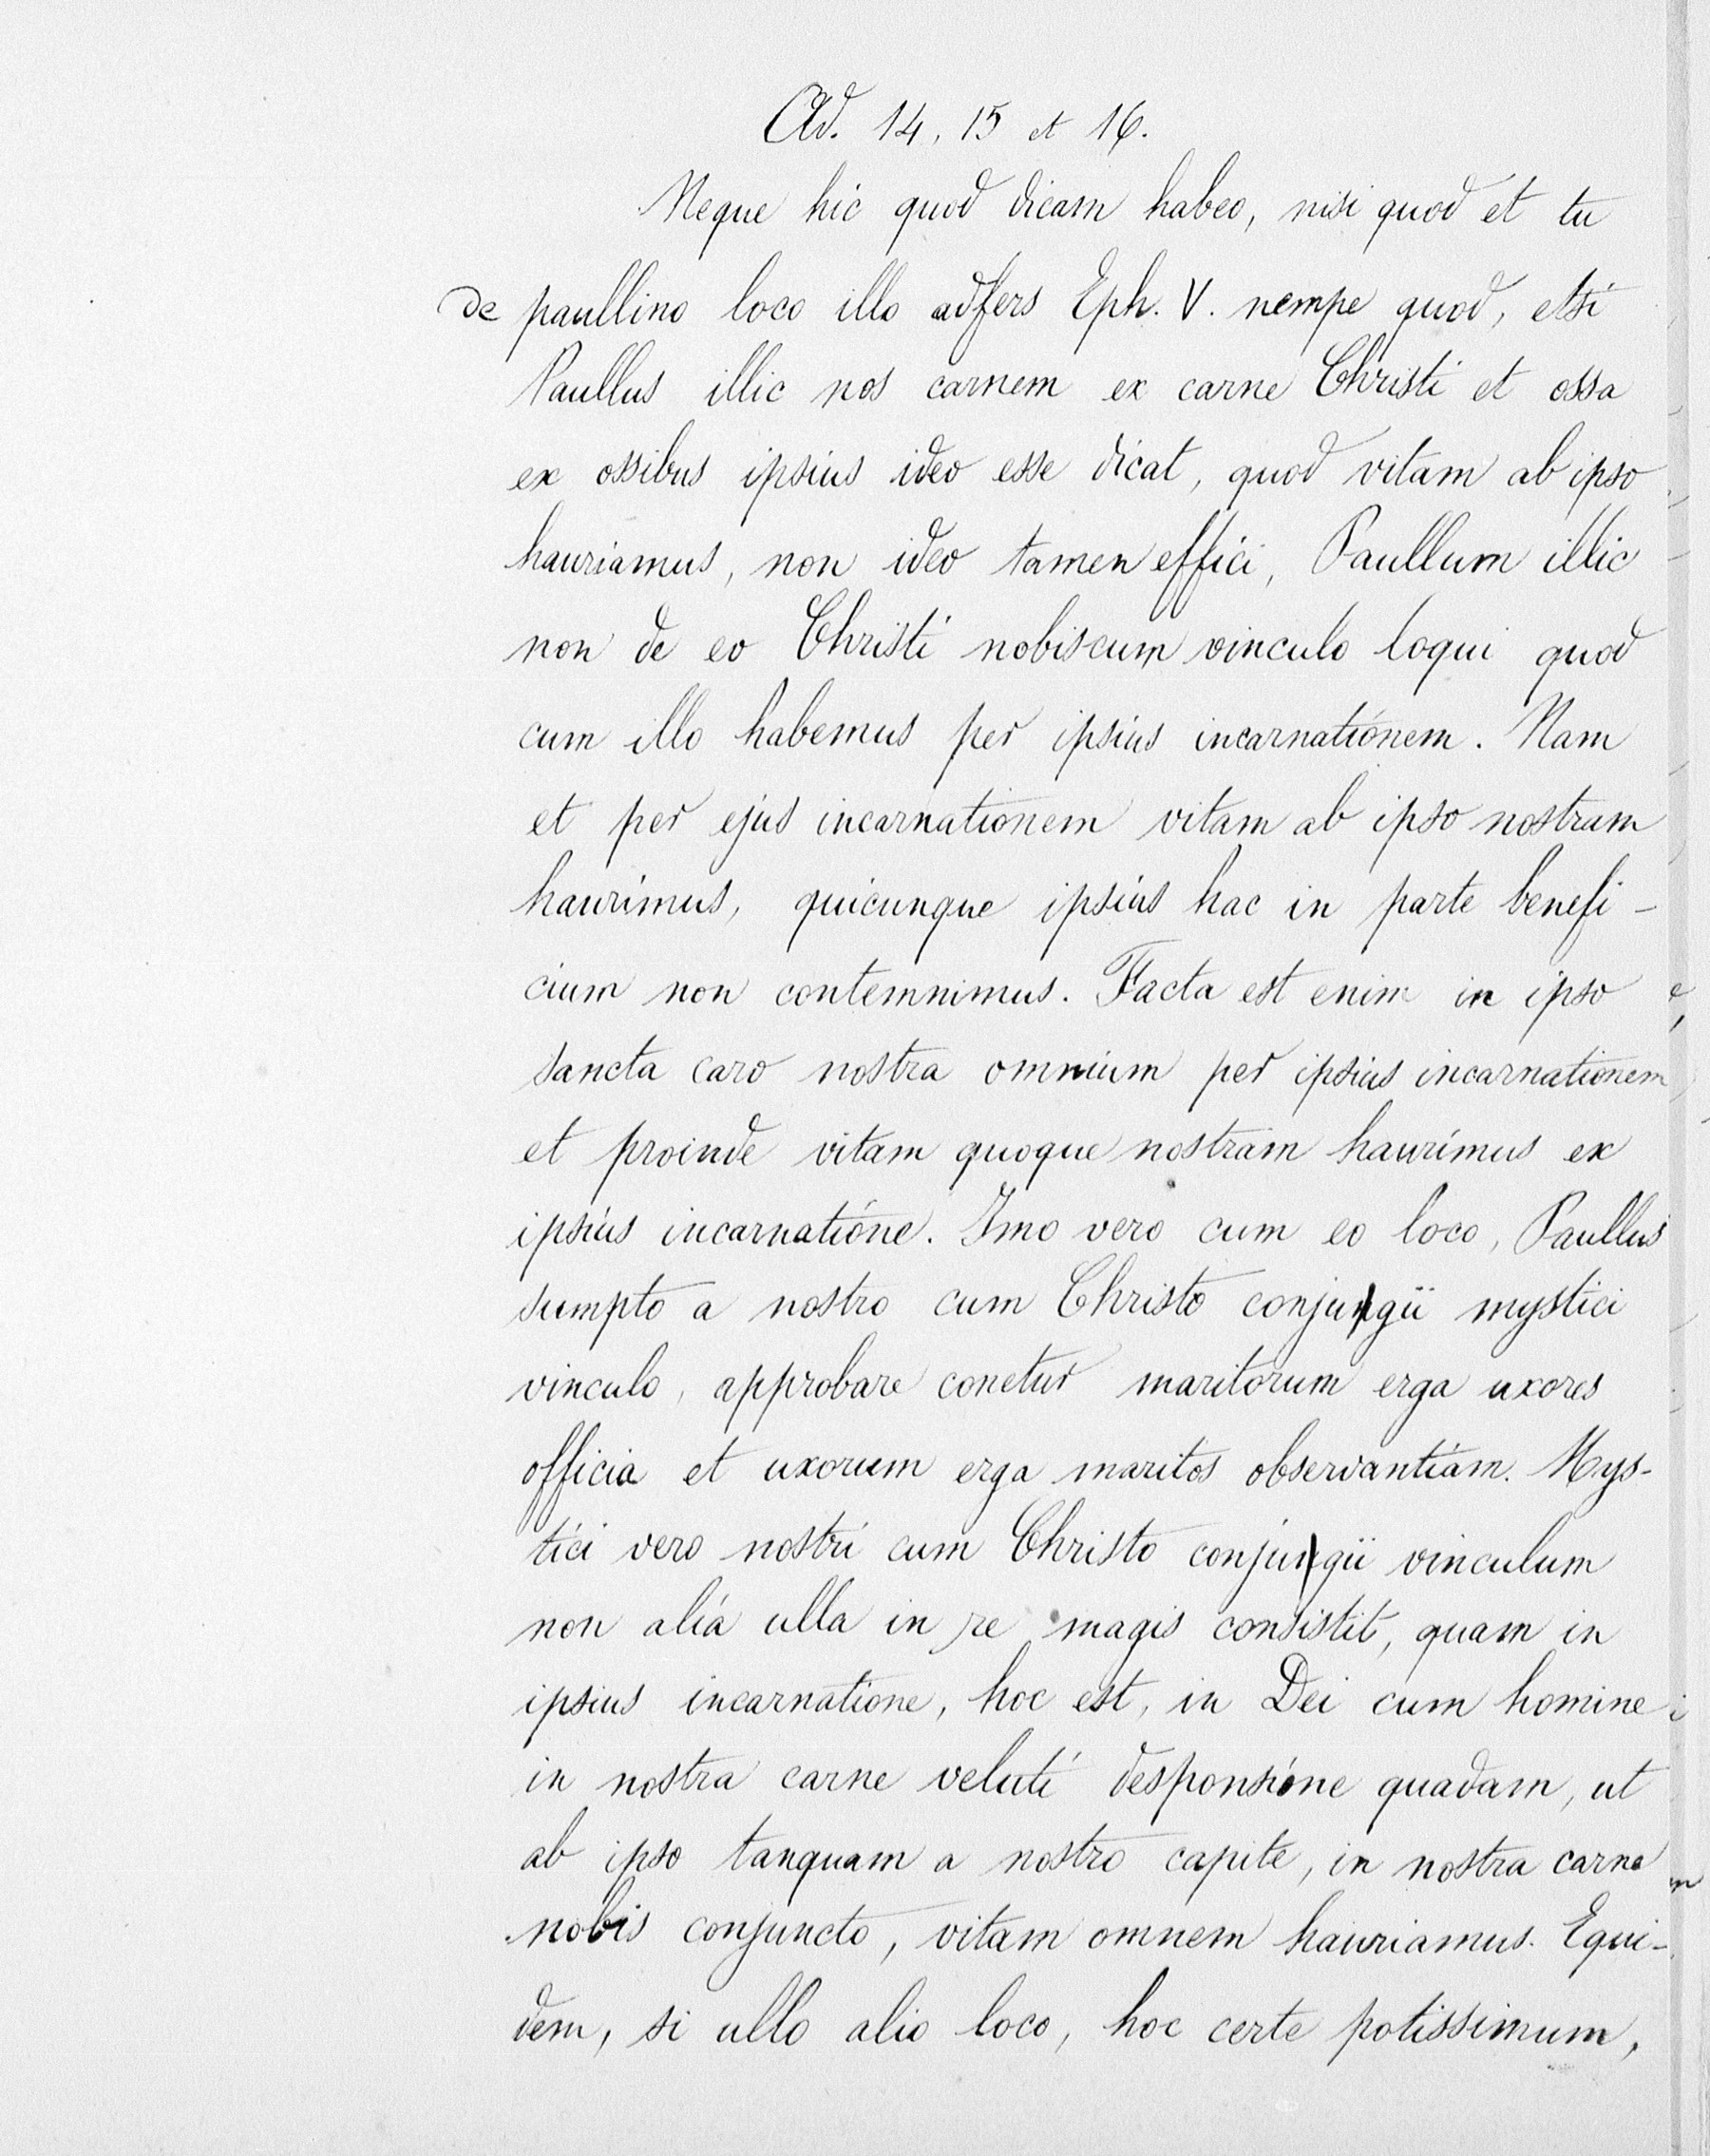 Ad. 14, 15 et 16.
Neque hic quod dicam habeo, nisi quod et tu
de paullino loco illo adfers Eph. V. nempe quod, etsi
Paullus illic nos carnem ex carne Christi et ossa
ex ossibus ipsius ideo esse dicat, quod vitam ab ipso
hauriamus, non ideo tamen effici, Paullum illic
non de eo Christi nobiscum vinculo loqui quod
cum illo habemus per ipsius incarnationem. Nam
et per ejus incarnationem vitam ab ipso nostram
haurimus, quicunque ipsius hac in parte benefi-
cium non contemnimus. Facta est enim in ipso
sancta caro nostra omnium per ipsius incarnationem
et proinde vitam quoque nostram haurimus ex
ipsius incarnatione. Imo vero cum eo loco, Paullus
sumpto a nostro cum Christo conjugii mystici
vinculo, approbare conetur maritorum erga uxores
officia et uxorum erga maritos observantiam. Mys-
tici vero nostri cum Christo conjugii vinculum
non alia ulla in re magis consistit, quam in
ipsius incarnatione, hoc est, in Dei cum homine
in nostra carne veluti desponsione quadam, ut
ab ipso tanquam a nostro capite, in nostra carne
nobis conjuncto, vitam omnem hauriamus. Equi-
dem, si ullo alio loco, hoc certe potissimum,